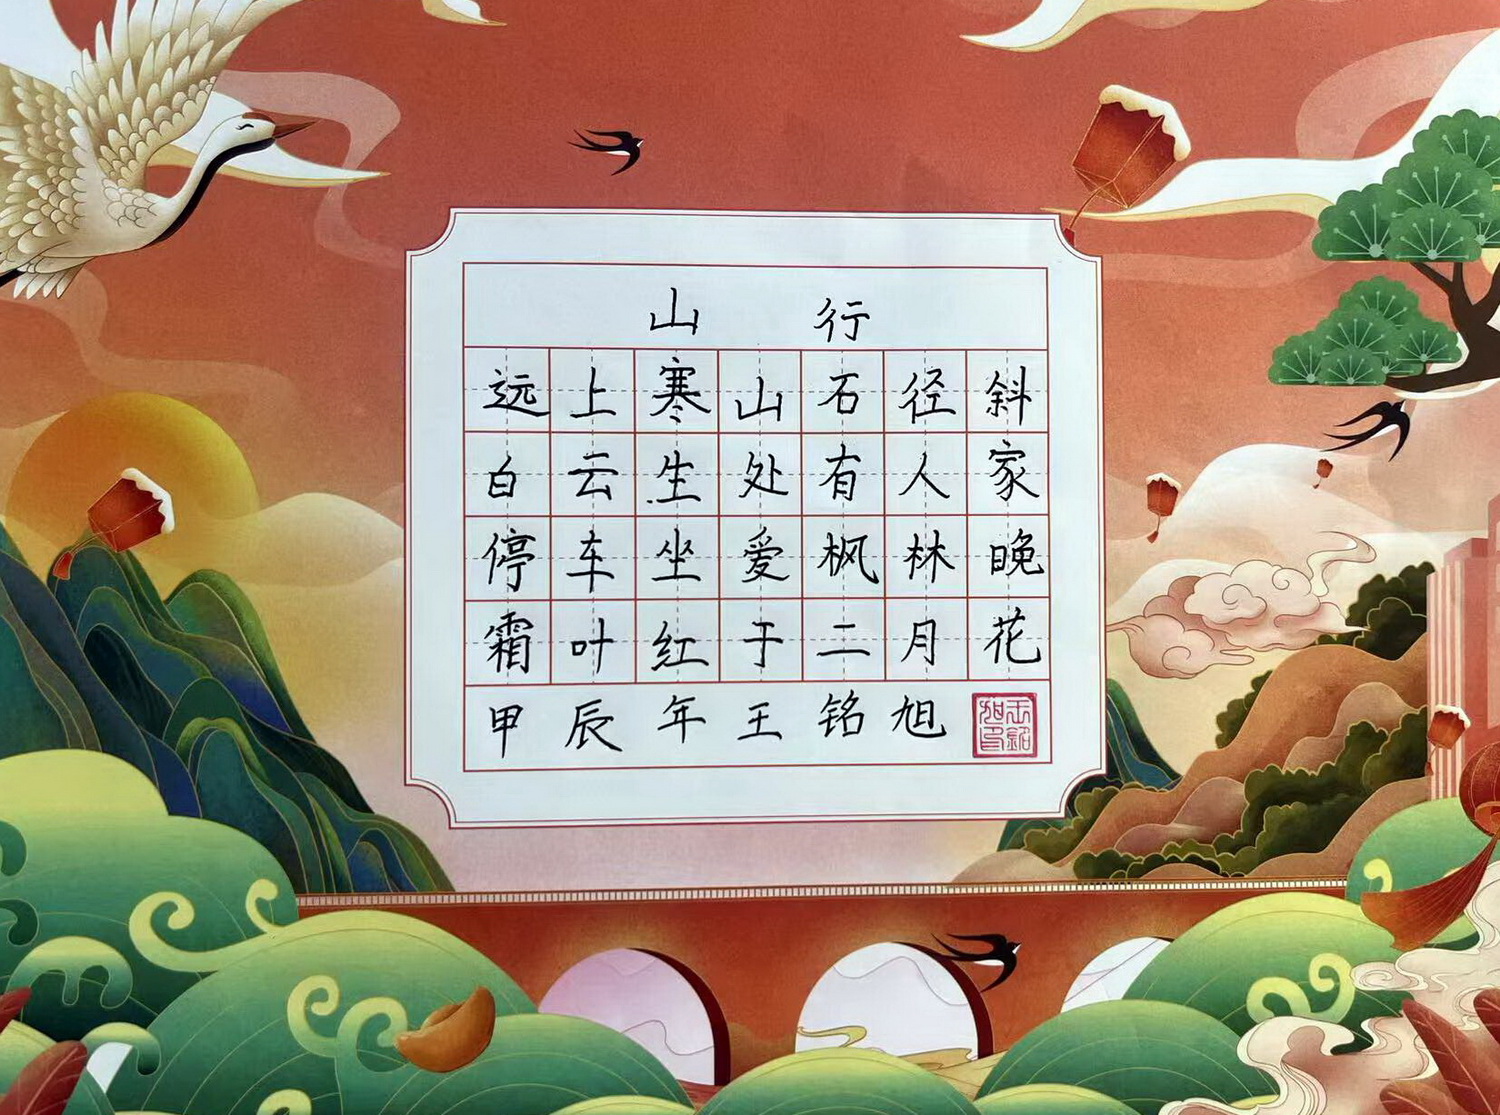 山行
远上寒山石径斜
白云生处有人家
停车坐爱枫林晚
霜叶红于二月花
甲辰年王铭旭
王铭旭印